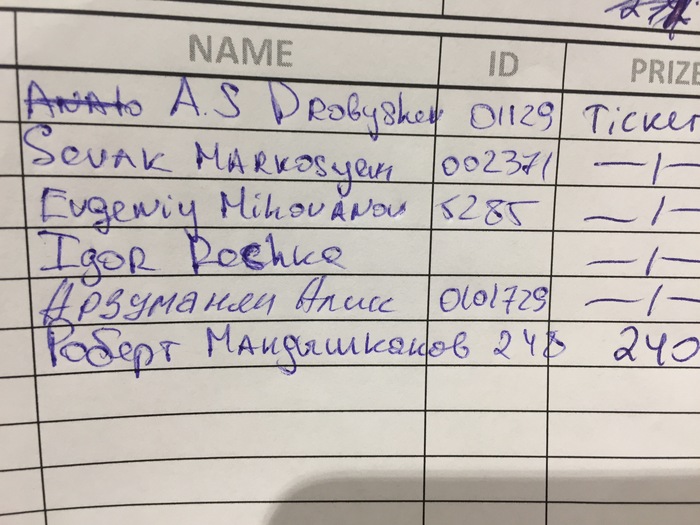 NAME ID PRIZE
A.S Drobyshev 01129 Ticket
Sevak Markosyan 002371 —/—
Evgeniy Mihovanov 5285 —/—
Igor Rochke —/—
Арзуманян Алисс 0101729 —/—
Роберт Мандышканов 248 240